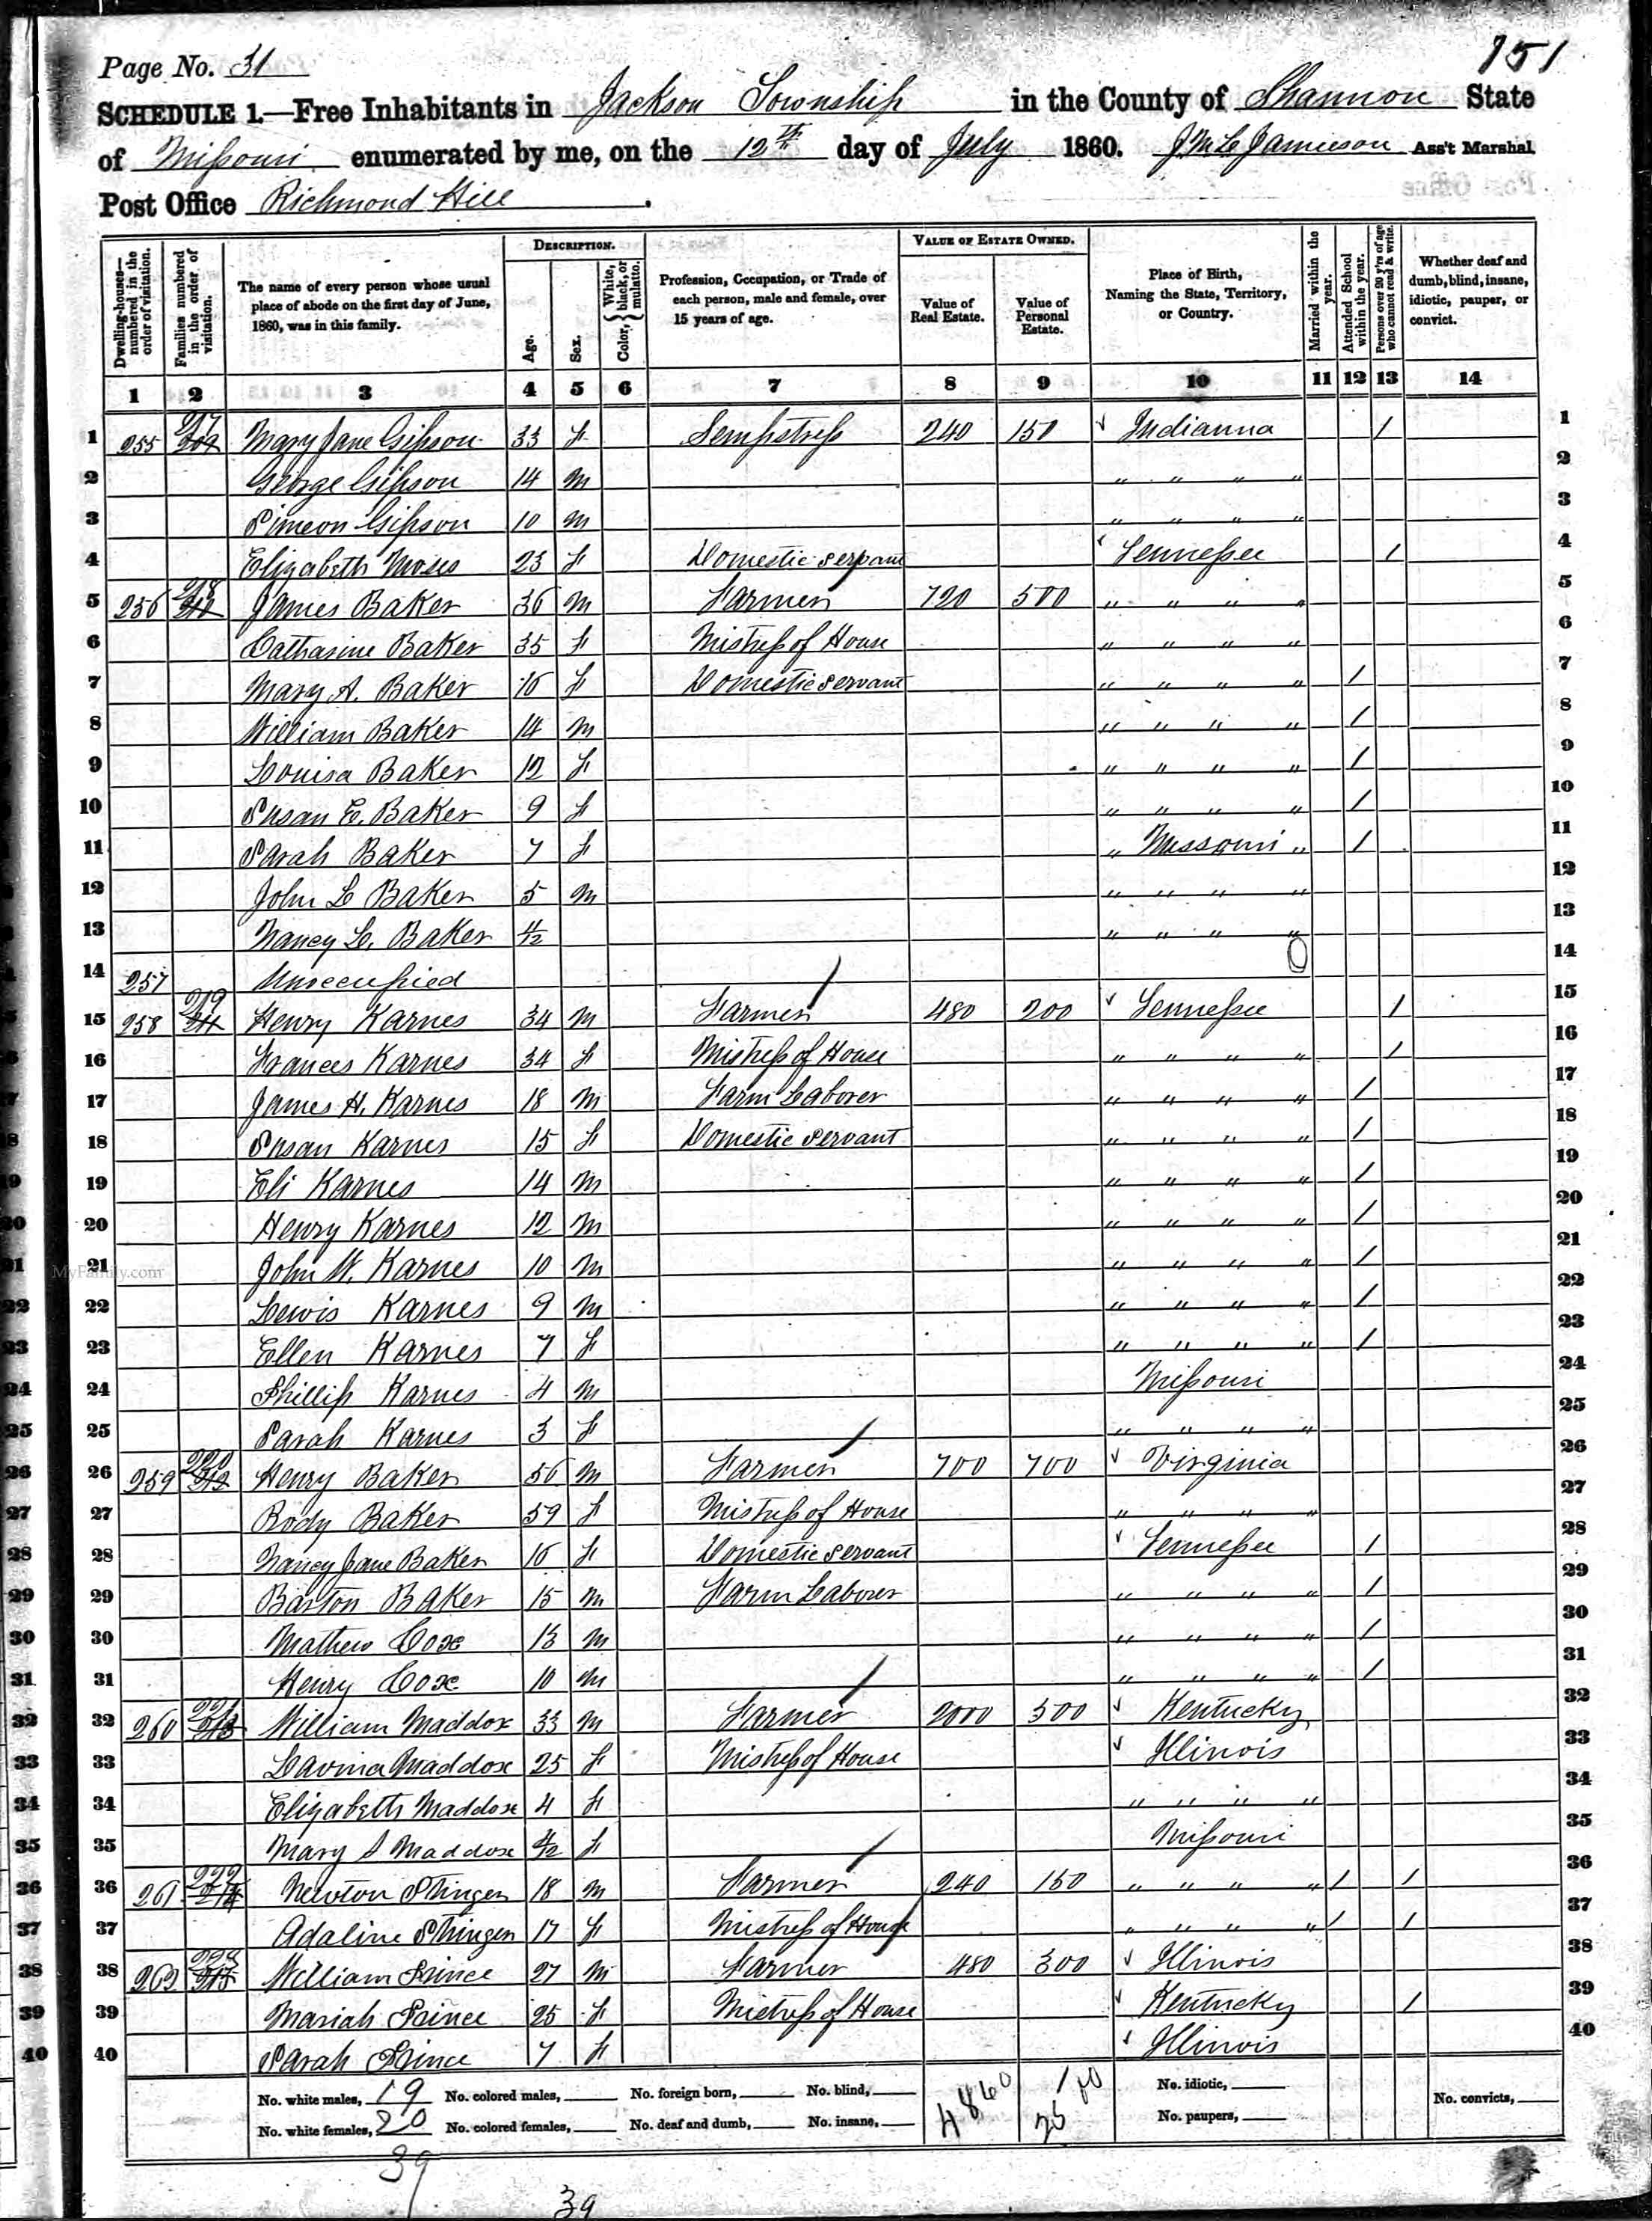 Page No. 31
751
SCHEDULE 1.—Free Inhabitants in Jackson Township in the County of Shannon State
of Missouri enumerated by me, on the 12th day of July 1860. J M C Jamieson Ass't Marshal
Post Office Richmond Hill
DESCRIPTION. VALUE OF ESTATE OWNED.
Dwelling-houses—numbered in the order of visitation. Families numbered in the order of visitation. The name of every person whose usual place of abode on the first day of June, 1860, was in this family. Age. Sex. Color, { White, black, or mulatto. Profession, Occupation, or Trade of each person, male and female, over 15 years of age. Value of Real Estate. Value of Personal Estate. Place of Birth, Naming the State, Territory, or Country. Married within the year. Attended School within the year. Persons over 20 y'rs of age who cannot read & write. Whether deaf and dumb, blind, insane, idiotic, pauper, or convict.
1 2 3 4 5 6 7 8 9 10 11 12 13 14
1 255 217 Mary Jane Gipson 33 f Sempstress 240 150 Indianna / 1
2 George Gipson 14 m " " " " 2
3 Simeon Gipson 10 m " " " " 3
4 Elizabeth Moses 23 f Domestic servant Tennessee / 4
5 256 218 James Baker 36 m Farmer 720 500 " " " " 5
6 Catharine Baker 35 f Mistress of House " " " " 6
7 Mary A. Baker 16 f Domestic servant " " " " / 7
8 William Baker 14 m " " " " / 8
9 Louisa Baker 12 f " " " " / 9
10 Susan E. Baker 9 f " " " " / 10
11 Sarah Baker 7 f " Missouri " / 11
12 John L Baker 5 m " " " " 12
13 Nancy L. Baker 4/12 " " " " 13
14 257 Unoccupied 14
15 258 219 Henry Karnes 34 m Farmer 480 200 Tennessee / 15
16 Frances Karnes 34 f Mistress of House " " " " / 16
17 James H. Karnes 18 m Farm Laborer " " " " / 17
18 Susan Karnes 15 f Domestic servant " " " " / 18
19 Eli Karnes 14 m " " " " / 19
20 Henry Karnes 12 m " " " " / 20
21 John W. Karnes 10 m " " " " / 21
22 Lewis Karnes 9 m " " " " / 22
23 Ellen Karnes 7 f " " " " / 23
24 Phillip Karnes 4 m Missouri 24
25 Sarah Karnes 3 f " " " " 25
26 259 220 Henry Baker 56 m Farmer 700 700 Virginia 26
27 Rody Baker 59 f Mistress of House " " " " 27
28 Nancy Jane Baker 16 f Domestic servant Tennessee / 28
29 Barton Baker 15 m Farm Laborer " " " " / 29
30 Mathew Cox 13 m " " " " / 30
31 Henry Cox 10 m " " " " / 31
32 260 221 William Maddox 33 m Farmer 2000 500 Kentucky 32
33 Lavina Maddox 25 f Mistress of House Illinois 33
34 Elizabeth Maddox 4 f " " " " 34
35 Mary S Maddox 4/12 f Missouri 35
36 261 222 Newton Stinger 18 m Farmer 240 150 " " " " / / 36
37 Adaline Stinger 17 f Mistress of House " " " " / / 37
38 262 William Prince 27 m Farmer 480 300 Illinois 38
39 Mariah Prince 25 f Mistress of House Kentucky / 39
40 Sarah Prince 7 f Illinois 40
No. white males, 19 No. colored males, No. foreign born, No. blind, 4860 No. idiotic, No. convicts,
No. white females, 20 No. colored females, No. deaf and dumb, No. insane, No. paupers,
39
39
MyFamily.com